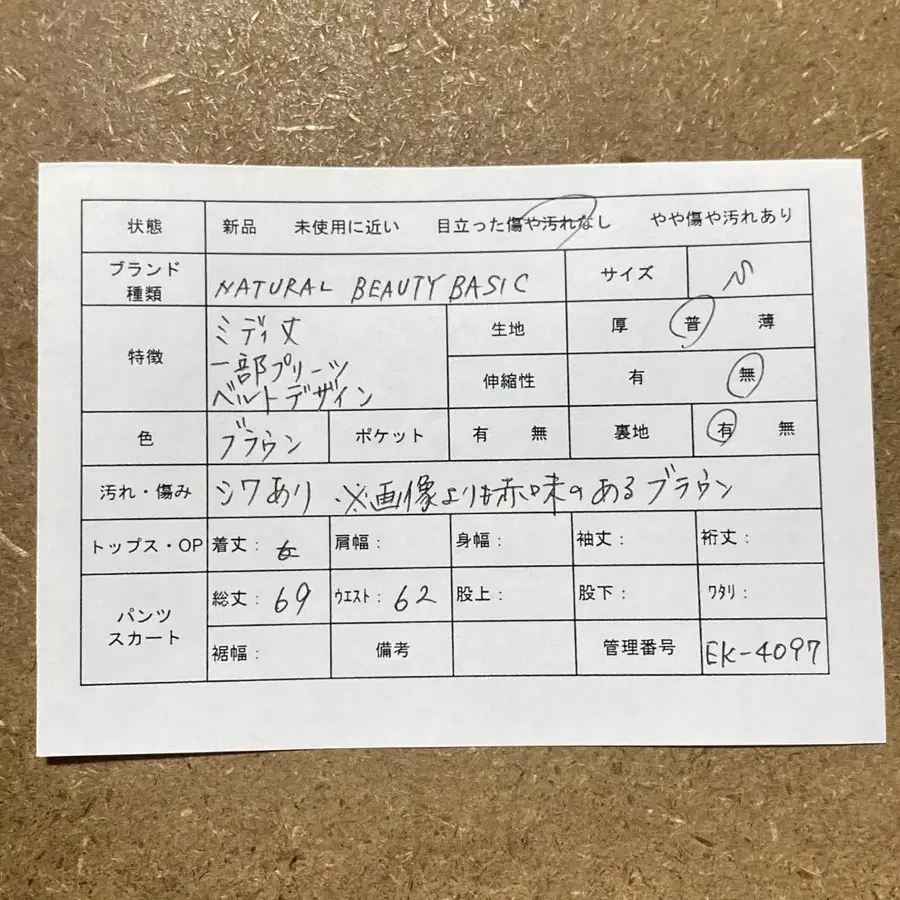 状態 新品 未使用に近い 目立った傷や汚れなし やや傷や汚れあり
ブランド種類 NATURAL BEAUTY BASIC サイズ S
特徴 ミディ丈
一部プリーツ
ベルトデザイン
生地 厚 普 薄
伸縮性 有 無
色 ブラウン ポケット 有 無 裏地 有 無
汚れ・傷み シワあり ※画像よりも赤味のあるブラウン
トップス・OP 着丈: 肩幅: 身幅: 袖丈: 裄丈:
パンツ
スカート
総丈: 69 ウエスト: 62 股上: 股下: ワタリ:
裾幅: 備考 管理番号 EK-4097